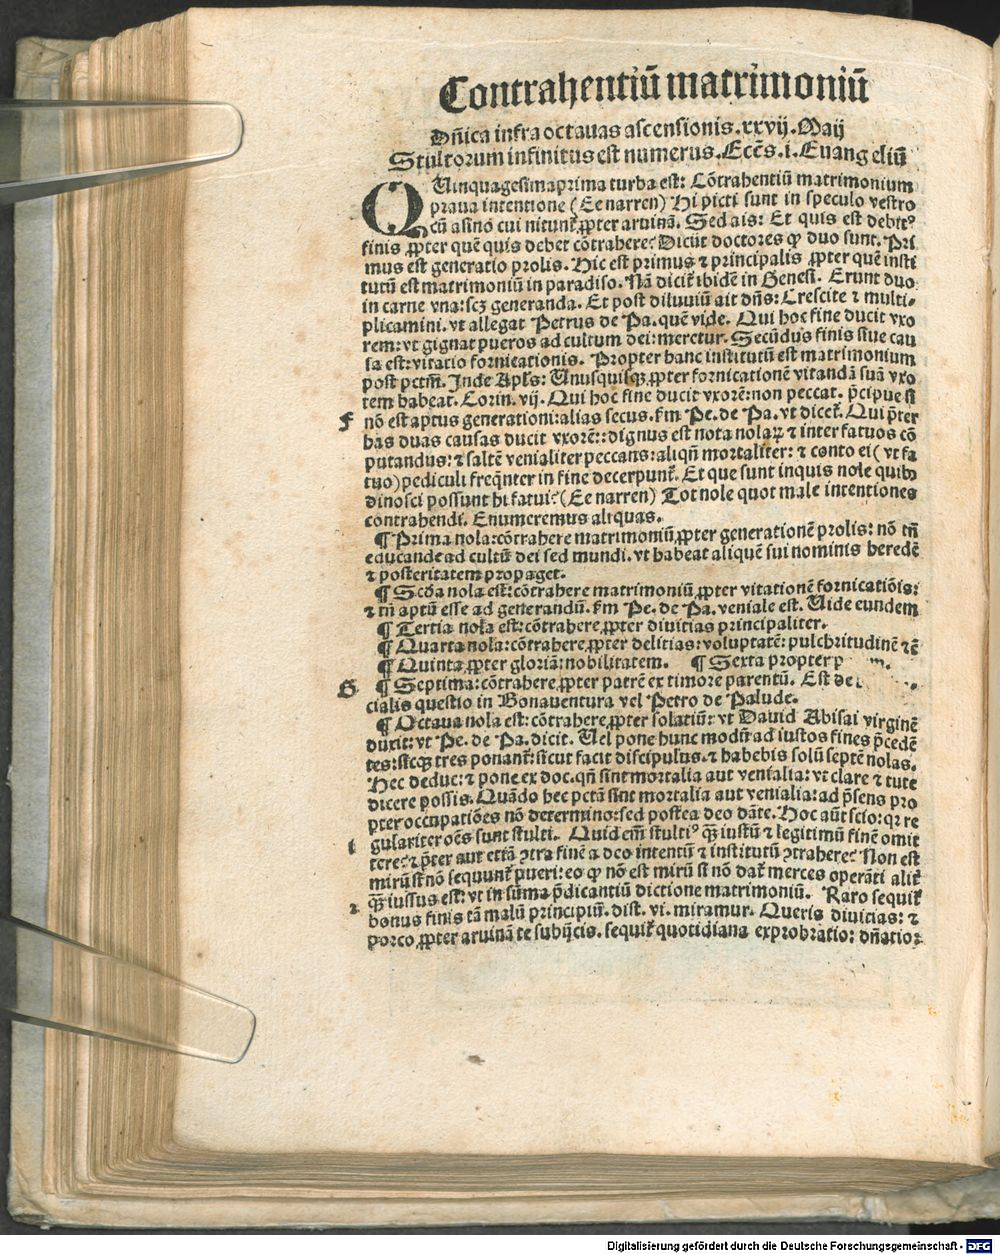 Contrahentiū matrimoniū
Dñica infra octauas ascensionis.xxvij.Maij
Stultorum infinitus est numerus.Ecc̄s.i.Euangeliū
QUinquagesimaprima turba est: Cōtrahentiū matrimonium
praua intentione (Ee narren) Hi picti sunt in speculo vestro
cū asino cui nitunt̄ ꝓpter aruinā. Sed ais: Et quis est debitꝰ
finis ꝓpter quē quis debet cōtrahere? Dicūt doctores ꝙ duo sunt. Pri
mus est generatio prolis. Hic est primus ⁊ principalis ꝓpter quē insti
tutū est matrimoniū in paradiso. Nā dicit̄ ibidē in Genesi. Erunt duo
in carne vna: scꝫ generanda. Et post diluuiū ait dn̄s: Crescite ⁊ multi-
plicamini. vt allegat Petrus de Pa. quē vide. Qui hoc fine ducit vxo
rem: vt gignat pueros ad cultum dei: meretur. Secūdus finis siue cau
sa est: vitatio fornicationis. Propter hanc institutū est matrimonium
post pctm̄. Inde Apl̄s: Unusquisqꝫ ꝓpter fornicationē vitandā suā vxo
rem habeat. Corin. vij. Qui hoc fine ducit vxorē: non peccat. p̄cipue si
F nō est aptus generationi: alias secus. ẜm Pe. de Pa. vt dicet̄. Qui p̄ter
has duas causas ducit vxorē: dignus est nota nolaꝝ ⁊ inter fatuos cō
putandus: ⁊ saltē venialiter peccans: aliqn̄ mortaliter: ⁊ conto ei (vt fa
tuo) pediculi freq̄nter in fine decerpunt̄. Et que sunt inquis nole quibꝰ
dinosci possunt hi fatui? (Ee narren) Tot nole quot male intentiones
contrahendi. Enumeremus aliquas.
¶ Prima nola: cōtrahere matrimoniū ꝓpter generationē prolis: nō tn̄
educande ad cultū dei sed mundi. vt habeat aliquē sui nominis heredē
⁊ posteritatem propaget.
¶ Scd̄a nola est: cōtrahere matrimoniū ꝓpter vitationē fornicatiōis:
⁊ tn̄ aptū esse ad generandū. ẜm Pe. de Pa. veniale est. Uide eundem
¶ Tertia nola est: cōtrahere ꝓpter diuitias principaliter.
¶ Quarta nola: cōtrahere ꝓpter delitias: voluptatē: pulchritudinē ⁊c̄
¶ Quinta ꝓpter gloriā: nobilitatem. ¶ Sexta propter
G ¶ Septima: cōtrahere ꝓpter patrē ex timore parentū. Est
cialis questio in Bonauentura vel Petro de Palude.
¶ Octaua nola est: cōtrahere ꝓpter solatiū: vt Dauid Abisai virginē
duxit: vt Pe. de Pa. dicit. Uel pone hunc modū ad iustos fines p̄cedē
tes: sicqꝫ tres ponant̄: sicut facit discipulus. ⁊ habebis solū septē nolas.
Hec deduc: ⁊ pone ex doc. qn̄ sint mortalia aut venialia: vt clare ⁊ tute
dicere possis. Quādo hec pctā sint mortalia aut venialia: ad p̄sens pro
pter occupatiōes nō determino: sed postea deo dāte. Hoc aūt scio: qꝛ re
1 gulariter oēs sunt stulti. Quid em̄ stultiꝰ qꝫ iustū ⁊ legitimū finē omit
tere: ⁊ p̄ter aut etiā ꝯtra finē a deo intentū ⁊ institutū ꝯtrahere? Non est
mirū si nō sequunt̄ pueri: eo ꝙ nō est mirū si nō dat̄ merces operāti alit̄
qꝫ iussus est: vt in sūma p̄dicantiū dictione matrimoniū. Raro sequit̄
2 bonus finis tā malū principiū. dist. vi. miramur. Queris diuitias: ⁊
porco ꝓpter aruinā te subijcis. sequit̄ quotidiana exprobratio: dn̄atio:
Digitalisierung gefördert durch die Deutsche Forschungsgemeinschaft - DFG